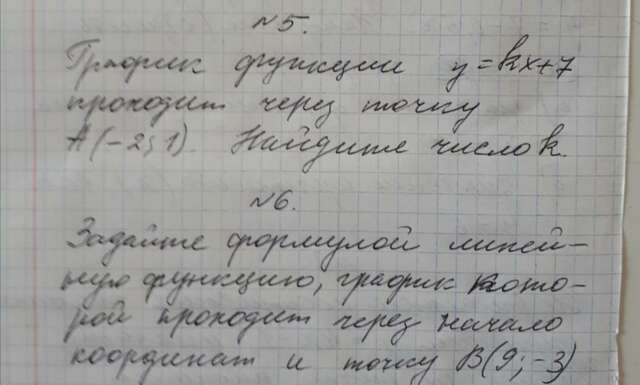 №5.
График функции y=kx+7
проходит через точку
A(-2;1). Найдите число k.
№6.
Задайте формулой линей-
ную функцию, график кото-
рой проходит через начало
координат и точку B(9;-3)